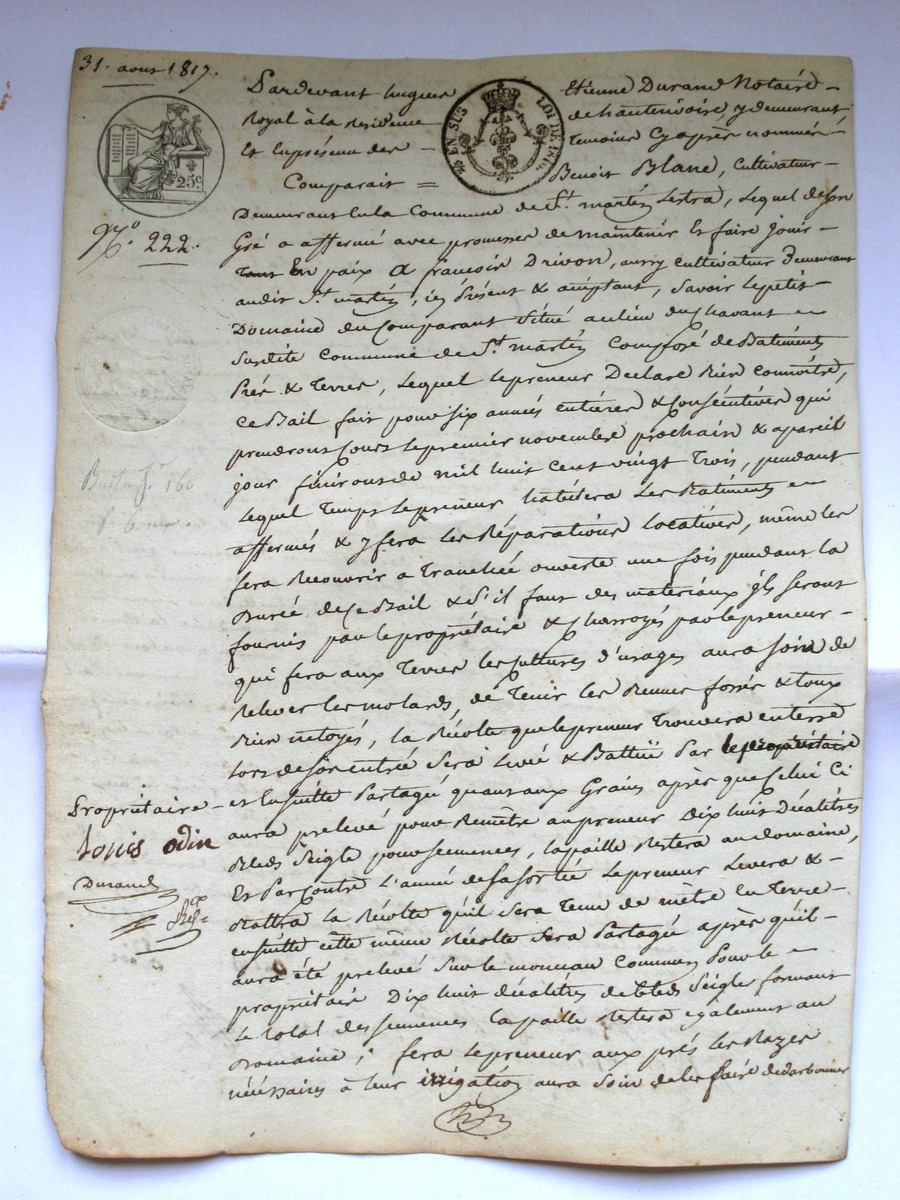 31. aoust 1817.
Pardevant hugues Etienne Durand Notaire
Royal à la Residence de hauterivoire, y demeurant
Et en présence des Temoins Cy après nommés
Comparait = Benoit Blanc, Cultivateur
25c
EN SUS LOI DE 1816
N.o 222.
Demeurant en la Commune de St. martin Lestra, Lequel de son
Gré a affermé avec promesse de maintenir Et faire jouir
En paix A francois Drivon, aussy cultivateur Demeurant
audit St. martin, icy Présent & acceptant, Savoir le petit
Domaine du Comparant Situé au lieu du Chavant
Susdite Commune de St. martin Composé de Batiments
Prés & Terres, Lequel le preneur Declare Bien Connoitre,
Ce Bail fait pour Six années entieres & Consécutives qui
prendront Cours le premier novembre prochain & a pareil
jour finiront de mil huit Cent vingt Trois, pendant
Lequel Temps le preneur habitera Les Batiments
affermés & y fera Les Réparations Locatives, même les
fera Recouvrir a Tranchée ouverte une fois pendant la
Durée de Ce Bail & S'il faut des materiaux ils Seront
fournis par le propriétaire & Charroyés par le preneur
qui fera aux Terres les Cultures d'usages aura Soin de
Relever les molards, de Tenir les fossés & Toux
Bien netoyés, la Récolte que le preneur Trouvera enterre
Lors de son entrée Sera Levée & Battüe Par le propriétaire
Propriétaire
et Ensuitte Partagé quant aux Grains après que Celui Ci
aura prelevé pour Remêttre au preneur Dix huit Décalitres
Louis odin
Bled Seigle pour semences, la paille Restera au Domaine,
Durand
Et Par Contre L'année de sa Sortie Le preneur Levera &
Battra la Récolte qu'il Sera Tenu de mêtre En Terre
ensuitte cette même Récolte Sera Partagé après qu'il
aura été prelevé Sur le monceau Commun Pour le
propriétaire Dix huit décalitres de bled Seigle formant
Le Total des Semences la paille Restera également au
Domaine; fera Le preneur aux prés les Razes
nécéssaires à leur irrigation aura Soin de les faire